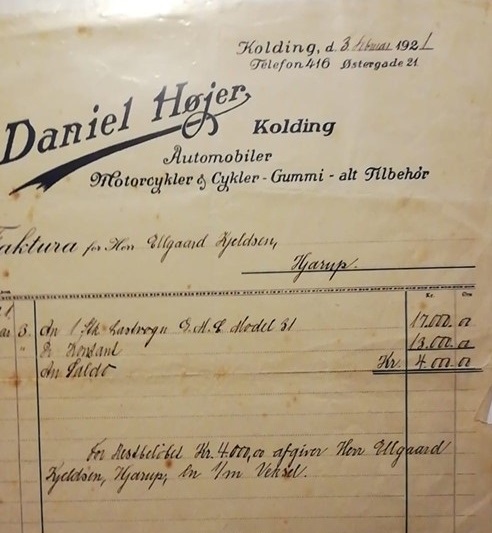 Kolding, d. 3 Februar 1921
Telefon 416 Østergade 21
Daniel Højer,
Kolding
Automobiler
Motorcykler & Cykler - Gummi - alt Tilbehør
Faktura for Herr Ellgaard Kjeldsen,
Hjarup.
Kr. Øre
3. An 1 Stk Lastvogn G.M.C Model 31 17.000. 00
" Pr Kontant 13.000. 00
An Saldo Kr. 4.000. 00
For Restbeløbet Kr. 4.000,00 afgiver Herr Ellgaard
Kjeldsen, Hjarup, en Veksel.